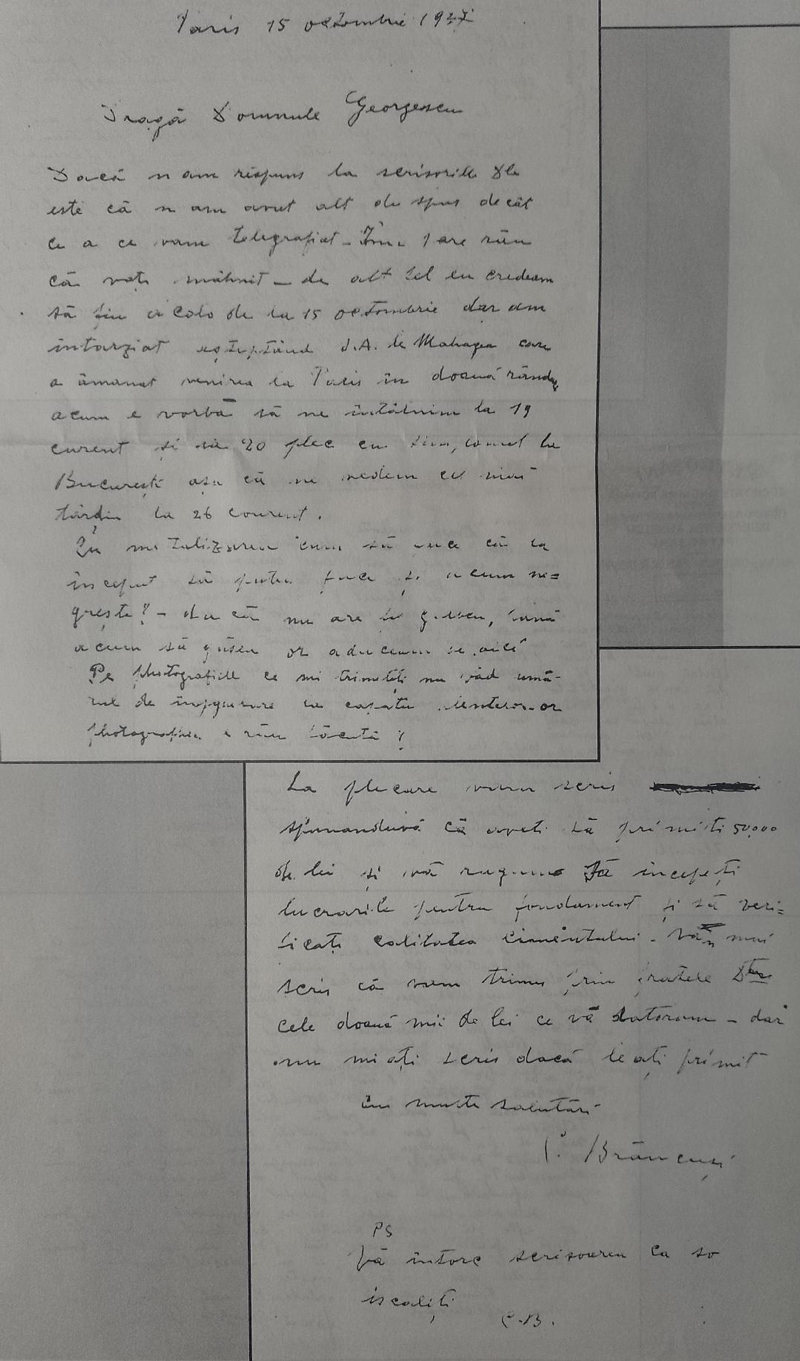 Paris 15 octombrie 1937
Dragă Domnule Georgescu
Dacă n am răspuns la scrisorile Dle
este că n am avut alt de spus decât
ce a ce vam telegrafiat – Îmi pare rău
că vați mâhnit – de alt fel eu credeam
să fiu acolo de la 15 octombrie dar am
întarziat așteptând J.A. de Maharja care
a âmanat venirea la Paris în douaă rânduri
acum e vorba să ne întâlnim la 19
curent și la 20 plec cu
București așa că ne vedem cel mai
târdiu la 26 courent.
Cu metalizarea cum să că ia
început să pută face și acum ne=
grește? – dacă nu are
acum să găsesc or aducem de aici
Pe photografiile ce mi trimiteți nu văd
de la capatu
photografiea e rău făcută ?
La plecare vam scris
spunanduvă că aveti să primiti 50,000
de lei și vă rugam să începeți
lucrarile pentru fondament și să veri=
ficați calitatea cimentului. Văm mai
scris că vam trimes prin fratele Dtra
cele douaă mii de lei ce vă datoram – dar
nu mi ați scris dacă le ați primit
Cu multe salutări
C. Brâncuși
PS
Vă întorc scrisoarea ca so
iscaliți
C.B.